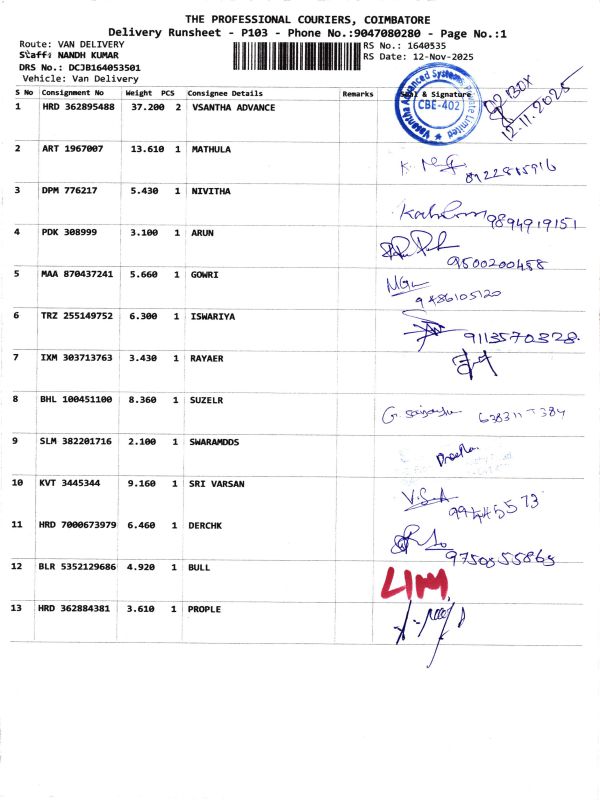 THE PROFESSIONAL COURIERS, COIMBATORE
Delivery Runsheet - P103 - Phone No.:9047080280 - Page No.:1
Route: VAN DELIVERY
RS No.: 1640535
Staff: NANDH KUMAR
RS Date: 12-Nov-2025
DRS No.: DCJB164053501
Vehicle: Van Delivery
S No Consignment No Weight PCS Consignee Details Remarks Seal & Signature
1 HRD 362895488 37.200 2 VSANTHA ADVANCE
Vasantha Advanced Systems Private Limited
CBE-402
02 BOX
12.11.2025
2 ART 1967007 13.610 1 MATHULA
3 DPM 776217 5.430 1 NIVITHA 9894919151
4 PDK 308999 3.100 1 ARUN 9500200458
5 MAA 870437241 5.660 1 GOWRI 9486105120
6 TRZ 255149752 6.300 1 ISWARIYA 9113570328
7 IXM 303713763 3.430 1 RAYAER
8 BHL 100451100 8.360 1 SUZELR
9 SLM 382201716 2.100 1 SWARAMDDS
10 KVT 3445344 9.160 1 SRI VARSAN V.S.A
11 HRD 7000673979 6.460 1 DERCHK
12 BLR 5352129686 4.920 1 BULL
13 HRD 362884381 3.610 1 PROPLE